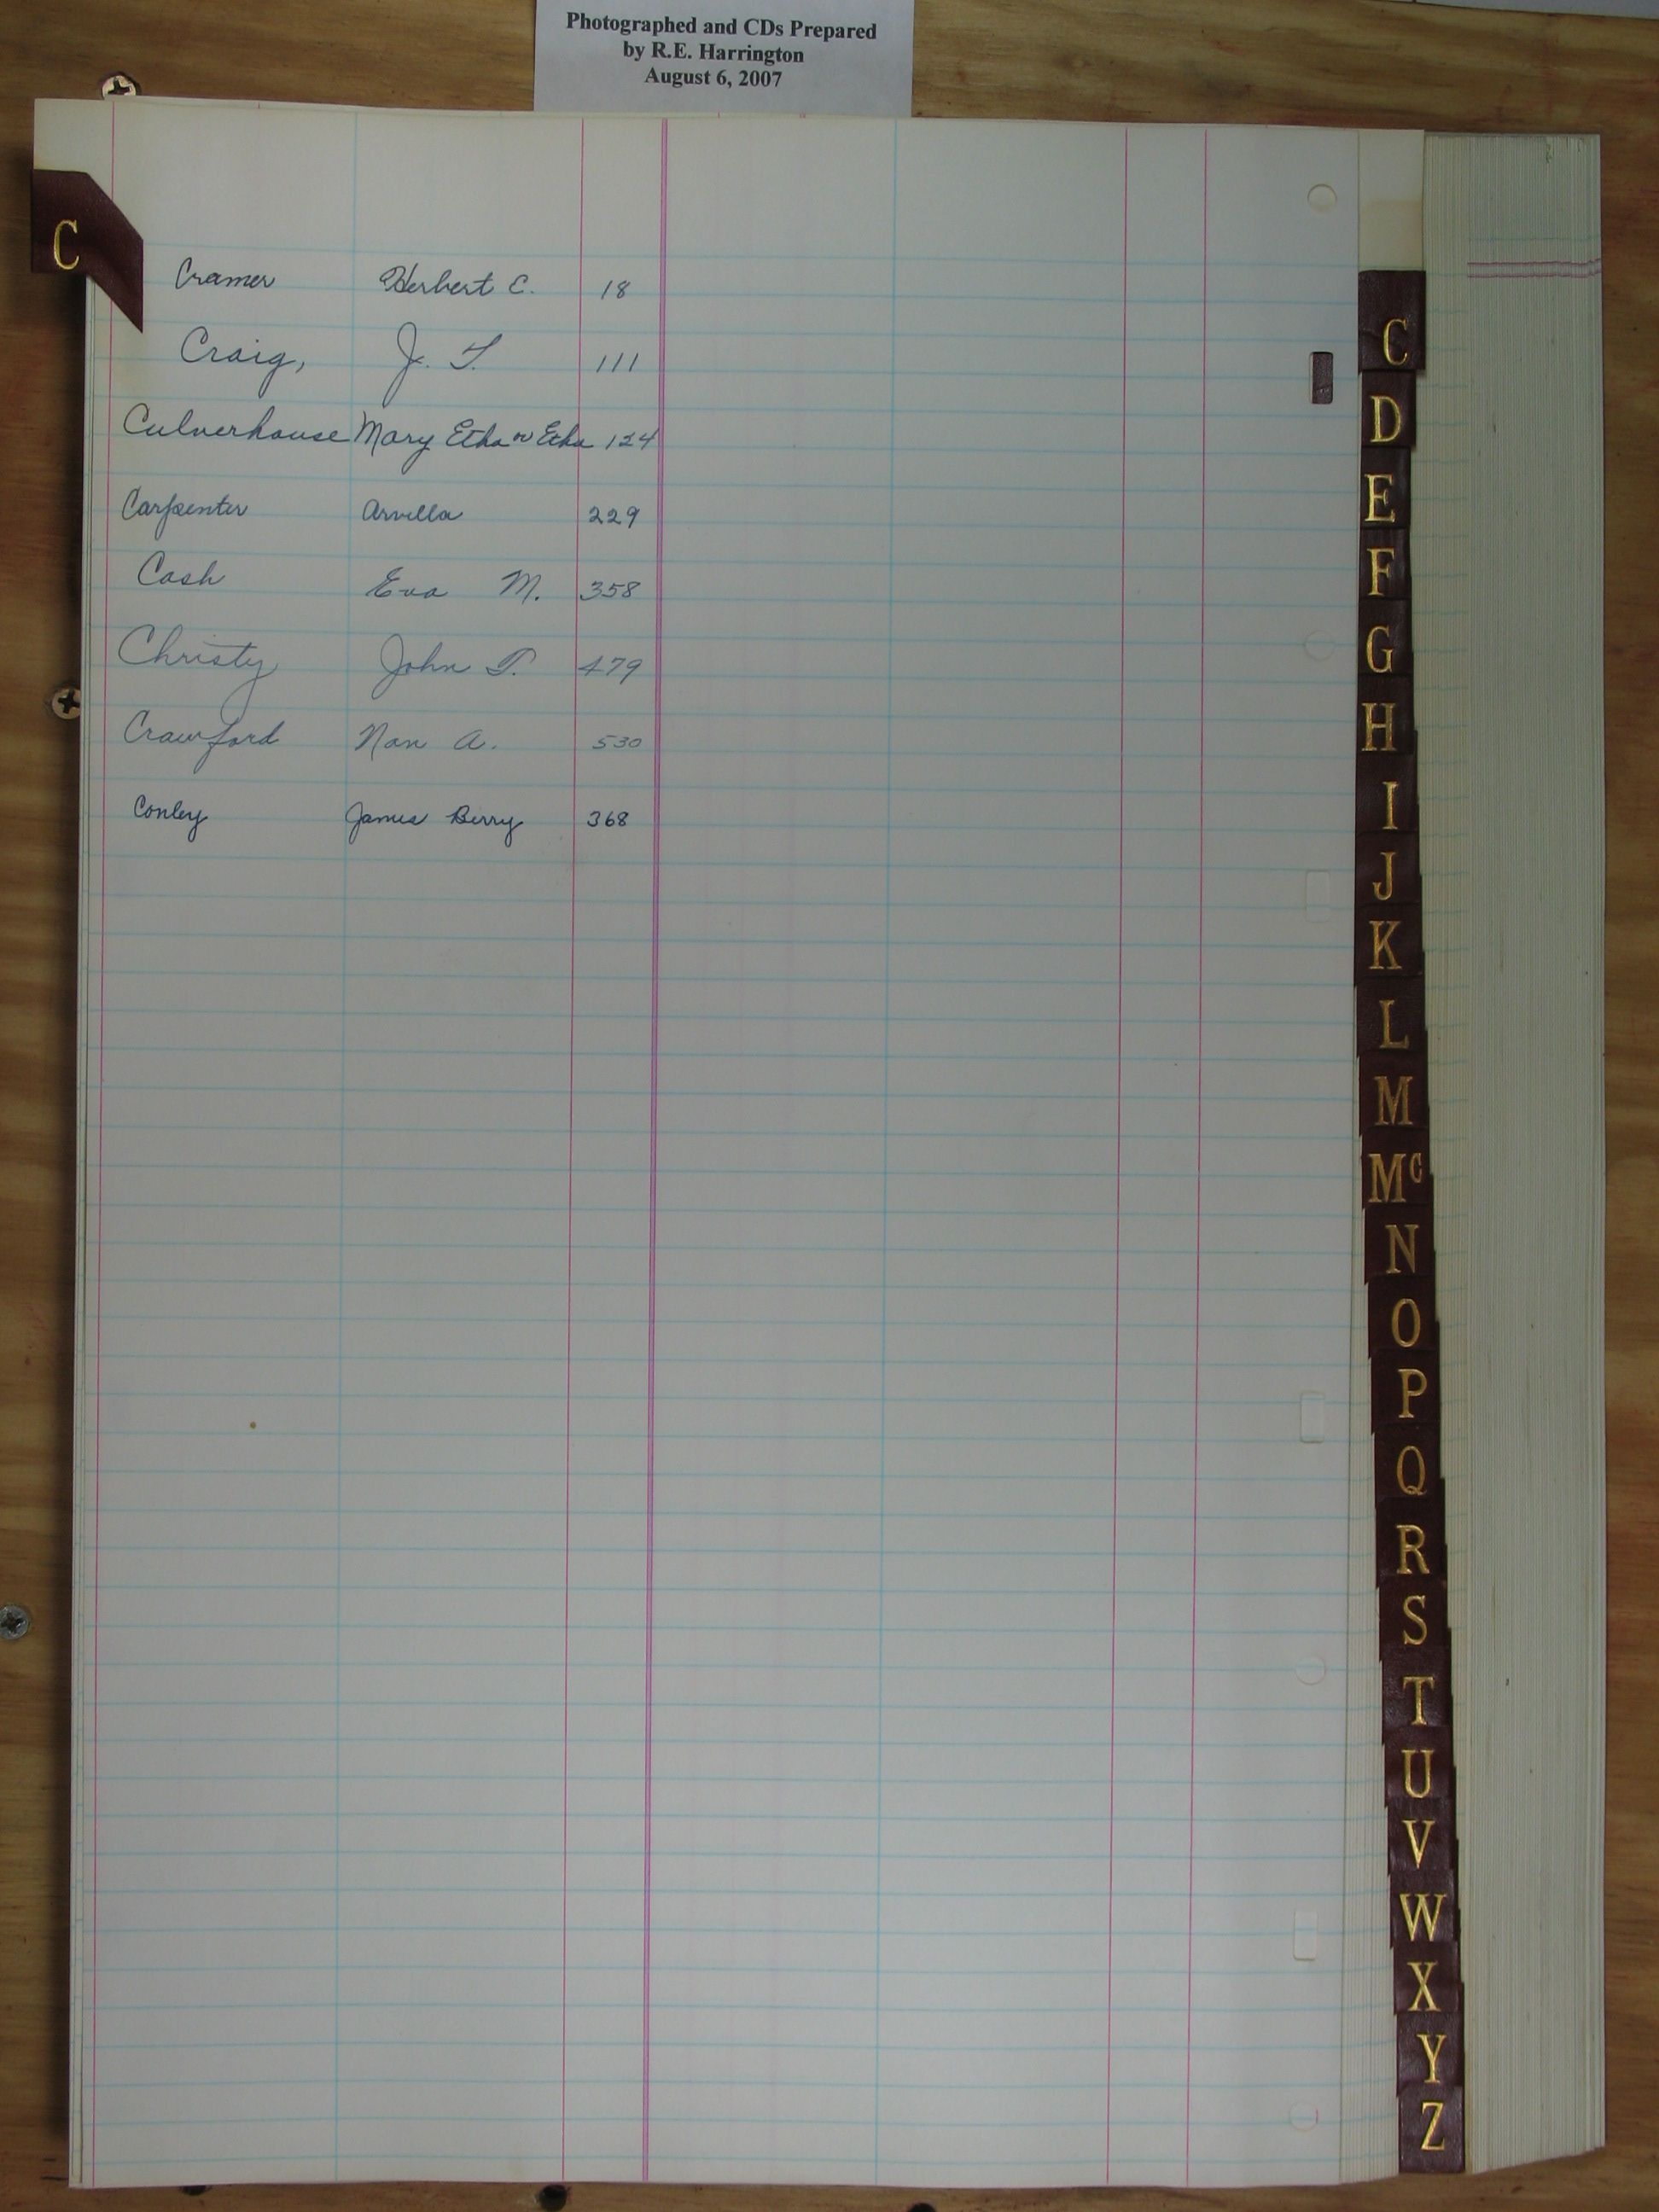 Photographed and CDs Prepared
by R.E. Harrington
August 6, 2007
C
Cramer Herbert C. 18
Craig, J. T. 111
Culverhouse Mary Etha or Etha 124
Carpenter Arvilla 229
Cash Eva M. 358
Christy John T. 479
Crawford Nan A. 530
Conley James Berry 368
C
D
E
F
G
H
I
J
K
L
M
Mc
N
O
P
Q
R
S
T
U
V
W
X
Y
Z